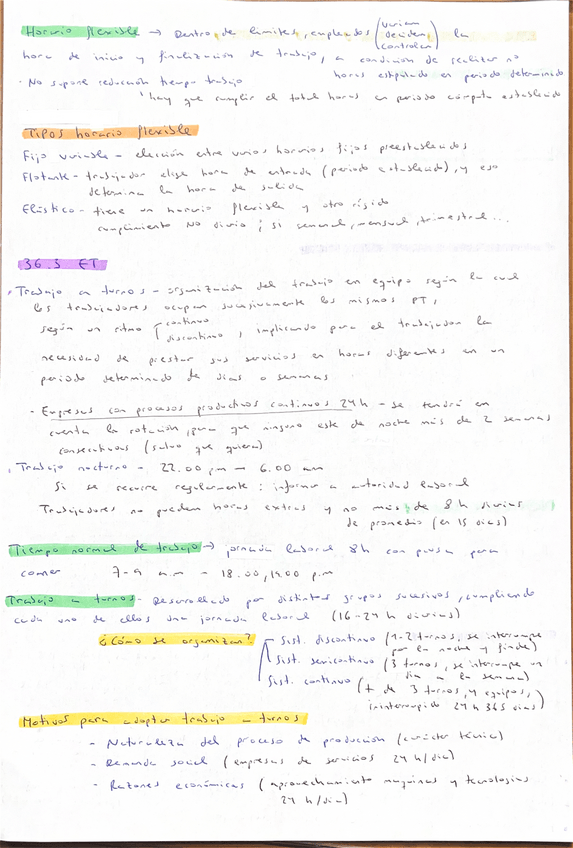 Horario flexible → Dentro de limites, empleados (varian
deciden
controlan) la
hora de inicio y finalización de trabajo, a condición de realizar no
horas estipulado en periodo determinado
· No supone reducción tiempo trabajo
hay que cumplir el total horas en periodo cómputo establecido
Tipos horario flexible
Fijo variable - elección entre varios horarios fijos preestablecidos
Flotante - trabajador elige hora de entrada (periodo establecido), y eso
determina la hora de salida
Elástico - tiene un horario flexible y otro rígido
cumplimiento NO diario; si semanal, mensual, trimestral...
36.3 ET
· Trabajo a turnos - organización del trabajo en equipo según la cual
los trabajadores ocupan sucesivamente los mismos PT,
según un ritmo continuo
discontinuo, implicando para el trabajador la
necesidad de prestar sus servicios en horas diferentes en un
periodo determinado de días o semanas
- Empresas con procesos productivos continuos 24h - se tendrá en
cuenta la rotación, para que ninguno este de noche más de 2 semanas
consecutivas (salvo que quiera)
· Trabajo nocturno - 22.00 pm - 6.00 am
Si se recurre regularmente: informar a autoridad laboral
Trabajadores no pueden horas extras y no más de 8h diarias
de promedio (en 15 días)
Tiempo normal de trabajo → jornada laboral 8h con pausa para
comer 7-9 a.m - 18.00, 19.00 p.m
Trabajo a turnos - Desarrollado por distintos grupos sucesivos, cumpliendo
cada uno de ellos una jornada laboral (16-24 h diarias)
¿Cómo se organizan? Sist. discontinuo (1-2 turnos, se interrumpe
por la noche y finde)
Sist. semicontinuo (3 turnos, se interrumpe un
día a la semana)
Sist. continuo (+ de 3 turnos, y equipos,
ininterrumpido 24 h 365 días)
Motivos para adoptar trabajo a turnos
- Naturaleza del proceso de producción (carácter técnico)
- Demanda social (empresas de servicios 24 h/día)
- Razones económicas (aprovechamiento maquinas y tecnologías
24 h/día)